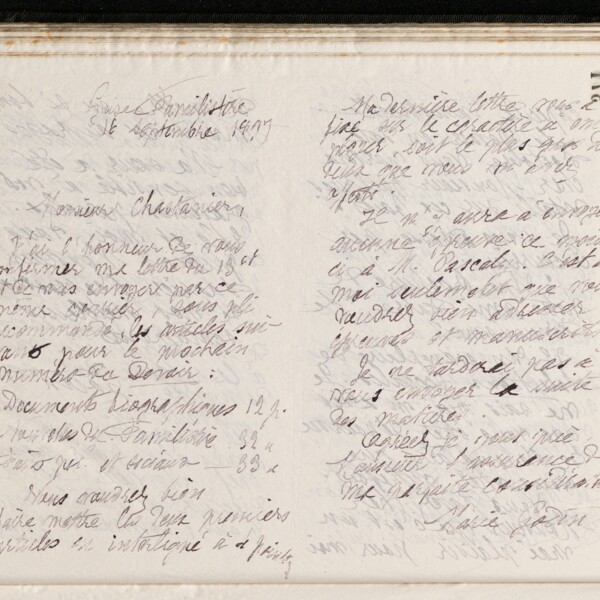 Guise Familistère
16 septembre 1897
Monsieur Chastanier,
J'ai l'honneur de vous
confirmer ma lettre du 13 ct
et de vous envoyer par ce
même courrier, sous pli
recommandé, les articles sui-
vants pour le prochain
numéro du Devoir :
Documents biographiques 12 p.
Familistère 32 "
et sociaux — 33 "
Vous voudrez bien
faire mettre les deux premiers
articles en interligné à 2 points
Ma dernière lettre vous a
fixé sur le caractère à em
ployer, soit le plus gros de
ceux que nous m'avez
offerts.
Il n'y aura à envoyer
aucune épreuve ce mois
ci à M. Pascaly. C'est à
moi seulement que vous
voudrez bien adresser
épreuves et manuscrits
Je ne tarderai pas à
vous envoyer la suite
des matières.
Agréez je vous prie
l'assurance de
ma parfaite considération
Marie Godin